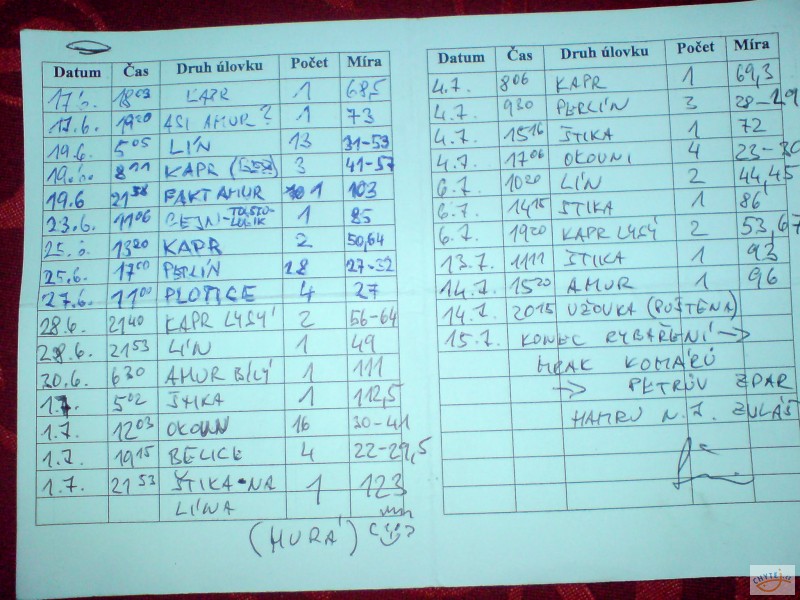 Datum Čas Druh úlovku Počet Míra
17.6. 1803 KAPR 1 68,5
17.6. 1920 ASI AMUR? 1 73
19.6. 505 LÍN 13 31-53
19.6. 811 KAPR 3 41-57
19.6 2158 FAKT AMUR 1 103
23.6. 1106 TOLSTOLOBIK 1 85
25.6. 1320 KAPR 2 50,64
25.6. 1700 PERLÍN 28 27-32
27.6. 1100 PLOTICE 4 27
28.6. 2140 KAPR LYSÝ 2 56-64
28.6. 2153 LÍN 1 49
30.6. 630 AMUR BÍLÝ 1 111
1.7. 502 ŠTIKA 1 112,5
1.7. 1203 OKOUN 16 30-41
1.7. 1915 BELICE 4 22-29,5
1.7. 2153 ŠTIKA-NA 1 123
LÍNA
(HURÁ)
Datum Čas Druh úlovku Počet Míra
4.7. 806 KAPR 1 69,3
4.7. 930 PERLÍN 3 28-29
4.7. 1516 ŠTIKA 1 72
4.7. 1706 OKOUNI 4 23-30
6.7. 1020 LÍN 2 44,45
6.7. 1415 ŠTIKA 1 86
6.7. 1920 KAPR LYSÝ 2 53,67
13.7. 1111 ŠTIKA 1 93
14.7. 1520 AMUR 1 96
14.7. 2015 UŽOVKA (PUŠTĚNA)
15.7. KONEC RYBAŘENÍ →
MRAK KOMÁRŮ
→ PETRŮV ZDAR
HAMRU N.J. ZVLÁŠ
CHYTEJ.cz